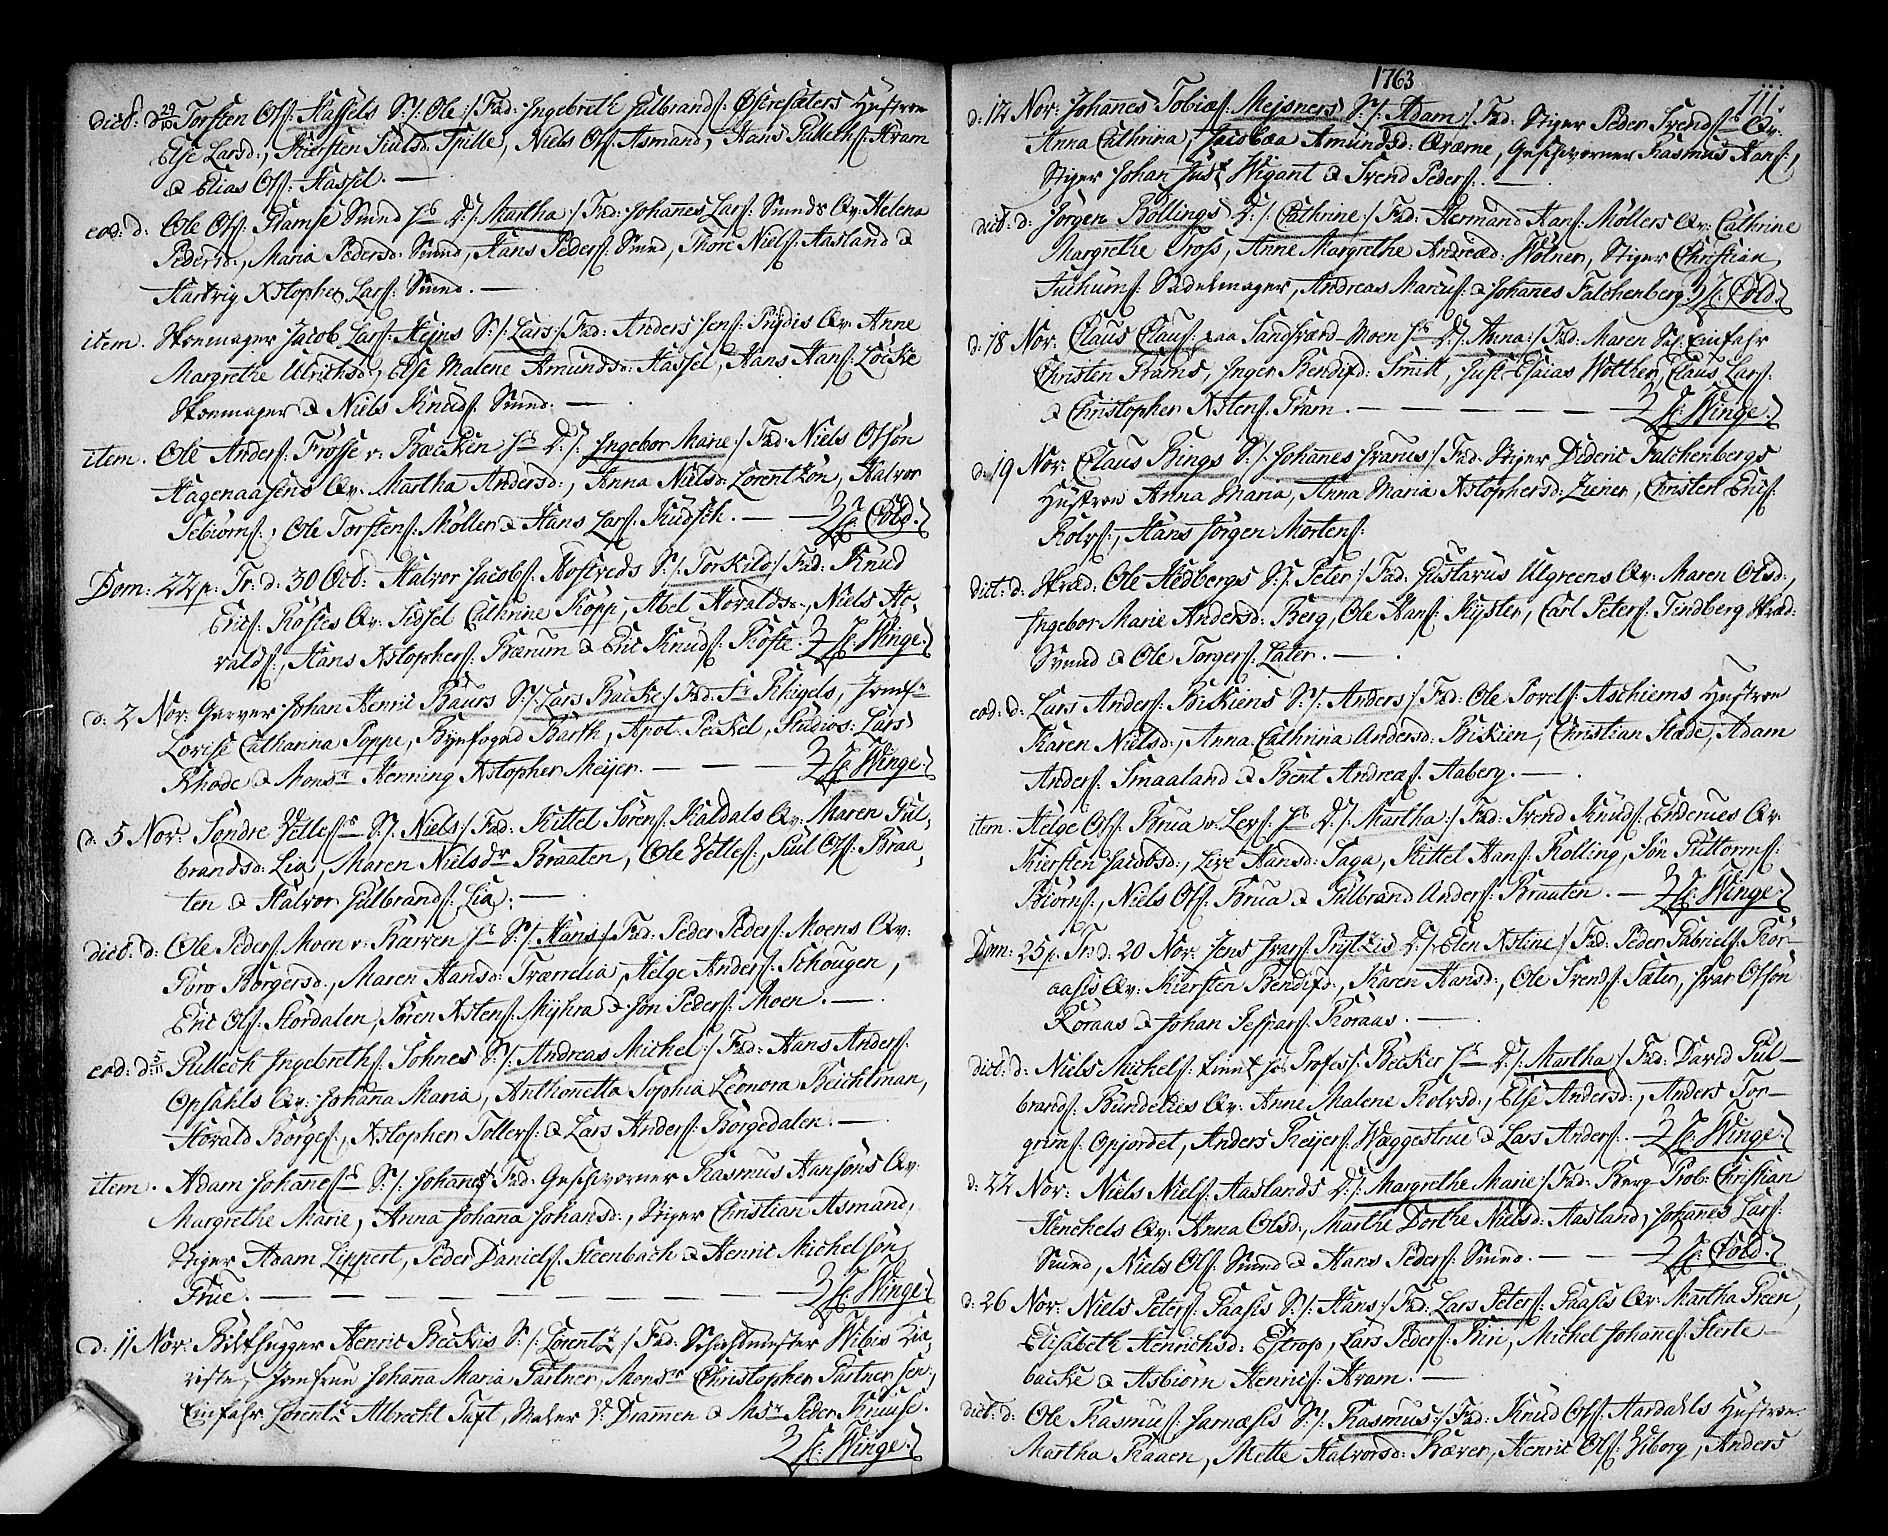 dict: d 29/10 Torsten Ols: Hassels S:/: Ole :/ Fad: Ingebreth Gulbrands: Østresæters Hustroe
Else Larsd:, Kiersten Siulsd: Spille, Niels Ols: Asmand, Hans Gulleths: Kram
& Elias Ols: Hassel. —
eod: d: Ole Ols: Ramse Smed hs D:/: Martha :/ Fad: Johanes Lars: Sunds Qv: Helena
Pedersd:, Maria Pedersd: Smed, Hans Peders: Smed, Thore Niels: Aasland &
Hartvig Xstopher Lars: Smed. —
item. Skoemager Jacob Lars: Hejns S:/: Lars :/ Fad: Anders Jens: Prydis Qv: Anne
Margrethe Ulrichsd:, Else Malene Amundsd: Hassel, Hans Hans: Løcke
Skoemager & Niels Knuds: Smed. —
item. Ole Anders: Frosse v: Backen hs D:/: Ingebor Marie :/ Fad: Niels Olsøn
Hagenaasens Qv: Martha Andersd:, Anna Nielsd: Lorentzøn, Halvor
Tebiørns:, Ole Torstens: Møller & Hans Lars: Kudsk. — H: Cold.
Dom: 22 p. Tr: d: 30 Oct: Halvor Jacobs: Hostveds S:/: Torkild :/ Fad: Knud
Erics: Røstes Qv: Sidsel Cathrine Kopp, Abel Hovaldsd:, Niels Ho-
valds:, Hans Xstophers: Bærum & Eric Knuds: Røste. H: Winge.
d: 2 Nov: Garver Johan Henric Baurs S:/: Lars Backe :/ Fad: Fr Rhigels, Jomfr
Lovise Catharina Poppe, Byefoged Barth, Apot: Peckel, Studios: Lars
Rhode & Monsr Henning Xstopher Meijer. — H: Winge.
d: 5 Nov: Søndre Vetles: S:/: Niels :/ Fad: Kittel Sørens: Kaldals Qv: Maren Gul-
brandsd: Lia, Maren Nielsdr Braaten, Ole Vetles:, Siul Ols: Braa-
ten & Halvor Gulbrands: Lia. —
dict: d: Ole Peders: Moen v: Bærven hs S:/: Hans :/ Fad: Peder Peders: Moens Qv:
Goro Borgersd:, Maren Hansd: Trærelia, Helge Anders: Schougen,
Eric Ols: Stordalen, Søren Xstens: Myhra & Jon Peders: Moen. —
eod: d: 5/11 Gullech Ingebreths: Sohnes S:/: Andreas Michel :/ Fad: Hans Anders:
Opsahls Qv: Johana Maria, Anthonetta Sophia Leonora Beichelman,
Hovald Børges:, Xstopher Tollers: & Lars Anders: Borgedalen. —
item. Adam Johanes: S:/: Johanes :/ Fad: Geschworner Rasmus Hansøns Qv:
Margrethe Marie, Anna Johana Johansd:, Stiger Christian Asmand,
Stiger Adam Lippert, Peder Daniels: Steenbach & Henric Michelsøn
True. — H: Winge.
d: 11 Nov: Bilthugger Henric Beckis S:/: Lorentz :/ Fad: Schichtmester Wibis Kia-
riste, Jomfrue Johana Maria Partner, Monsr Christopher Partner sen:,
Einfahr Lorentz Albrecht Taft, Maler v: Drammen & Msr Peder Knuse.
H: Winge.
1763
111.
d: 12 Nov: Johanes Tobias: Mejsners S:/: Adam :/ Fad: Stiger Peder Svends: Qv:
Anna Cathrina, Jacobæa Amundsd: Qværne, Geschworner Rasmus Hans:,
Stiger Johan Just Wigant & Svend Peders: —
dict: d: Jørgen Bollings D:/: Cathrine :/ Fad: Hermand Hans: Møllers Qv: Cathrine
Margrethe Tross, Anne Margrethe Andreæd: Wølner, Stiger Christian,
Juchums: Sadelmager, Andreas Marcus: & Johanes Falchenberg. H: Cold.
d: 18 Nov: Claus Claus: paa Sandsværd-Moen hs D:/: Anna :/ Fad: Maren Sal: Einfahr
Christen Prams, Inger Bendixd: Smitt, Just Esaias Wolther, Claus Lars:
& Christopher Xstens: Pram. — — — H: Winge.
d: 19 Nov: Claus Bings S:/: Johanes Franus :/ Fad: Stiger Dideric Falchenbergs
Hustroe Anna Maria, Anna Maria Xstophersd: Ziener, Christen Erics:
Rolvs:, Hans Jørgen Mortens:
dict: d: Skræd: Ole Hedbergs S:/: Peter :/ Fad: Gustavus Ulgreens Qv: Maren Olsd:,
Ingebor Marie Andersd: Berg, Ole Hans: Kyster, Carl Peters: Lindberg Skræd:
Svend & Ole Torgers: Later. —
eod: d: Lars Anders: Biskiens S:/: Anders :/ Fad: Ole Povels: Aschiems Hustroe
Karen Nielsd:, Anna Cathrina Andersd: Biskien, Christian Stæde, Adam
Anders: Smaaland & Bent Andreæs: Aaberg. —
item. Helge Ols: Brua v. Levs: hs D:/: Martha :/ Fad: Svend Knuds: Enderues Qv:
Kiersten Jacobsd:, Live Hansd: Saga, Kittel Hans: Kolling, Jøn Guttorms:
Biørns:, Niels Ols: Brua & Gulbrand Anders: Braaten. — H: Winge.
Dom: 25 p. Tr: d: 20 Nov: Jens Ivars: Prytzis D:/: Elen Xstine :/ Fad: Peder Gabriels: Kor-
aasis Qv: Kiersten Bendixd:, Karen Hansd:, Ole Svends: Sæter, Ivar Olsøn
Koraas & Johan Jespars: Koraas. —
dict: d: Niels Michels: hos Profess: Becker hs D:/: Martha :/ Fad: David Gul-
brands: Bundelies Qv: Anne Malene Rolvsd:, Else Andersd:, Anders Tor-
grims: Opjordet, Anders Reijers: Wæggestrue & Lars Anders: — H: Winge.
d: 22 Nov: Niels Niels: Aaslands D:/: Margrethe Marie :/ Fad: Berg Prob: Christian
Henchels Qv: Anna Olsd:, Marthe Dorthe Nielsd: Aasland, Johanes Lars:
Smed, Niels Ols: Smed & Hans Peders: Smed. — H: Cold.
d: 26 Nov: Niels Peters: Faasis S:/: Hans :/ Fad: Lars Peters: Faasis Qv: Martha Green,
Elisabeth Henrichsd: Estrop, Lars Peders: Brn, Michel Johanes: Sterte-
backe & Asbiørn Henrics: Kram. —
dict: d: Ole Rasmus: Jarnæsis S:/: Rasmus :/ Fad: Knud Ols: Aardahls Hustroe
Martha Raaen, Mette Halvorsd: Bæver, Henric Ols: Viborg, Anders